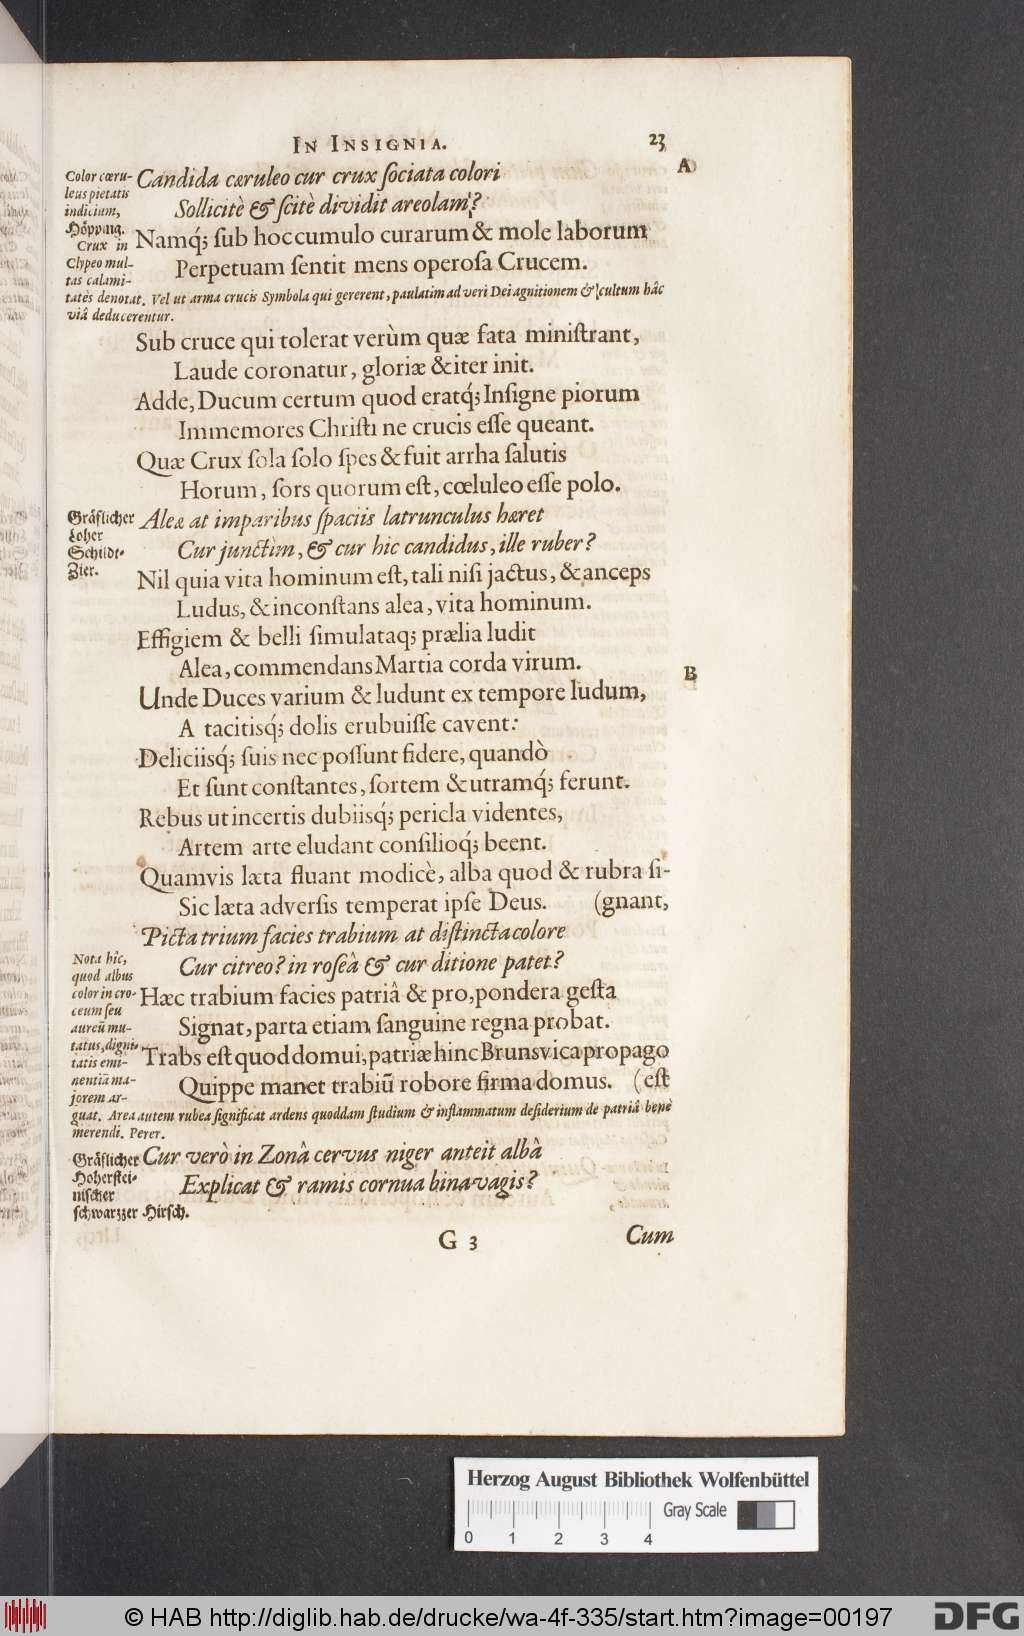 IN INSIGNIA. 23
A
Color cæru-
leus pietatis
indicium,
Höpping.
Crux in
Clypeo mul-
tas calami-
tatès denotat. Vel ut arma crucis Symbola qui gererent, paulatim ad veri Dei agnitionem & cultum hâc
viâ deducerentur.
Candida cæruleo cur crux ſociata colori
Sollicitè & ſcitè dividit areolam?
Namq́; ſub hoc cumulo curarum & mole laborum
Perpetuam ſentit mens operoſa Crucem.
Sub cruce qui tolerat verùm quæ fata miniſtrant,
Laude coronatur, gloriæ & iter init.
Adde, Ducum certum quod eratq́; Inſigne piorum
Immemores Chriſti ne crucis eſſe queant.
Quæ Crux ſola ſolo ſpes & fuit arrha ſalutis
Horum, ſors quorum eſt, cœluleo eſſe polo.
Gräflicher
Loher
Schildt-
Zier.
Aleæ at imparibus ſpaciis latrunculus hæret
Cur junctìm, & cur hic candidus, ille ruber?
Nil quia vita hominum eſt, tali niſi jactus, & anceps
Ludus, & inconſtans alea, vita hominum.
Effigiem & belli ſimulataq; prælia ludit
Alea, commendans Martia corda virum.
B
Unde Duces varium & ludunt ex tempore ludum,
A tacitisq́; dolis erubuiſſe cavent:
Deliciisq́; ſuis nec poſſunt fidere, quandò
Et ſunt conſtantes, ſortem & utramq́; ferunt.
Rebus ut incertis dubiisq́; pericla videntes,
Artem arte eludant conſilioq́; beent.
Quamvis læta fluant modicè, alba quod & rubra ſi-
Sic læta adverſis temperat ipſe Deus. (gnant,
Picta trium facies trabium at diſtincta colore
Nota hîc,
quod albus
color in cro-
ceum ſeu
aureũ mu-
tatus, digni-
tatis emi-
nentiã ma-
jorem ar-
guat. Area autem rubea ſignificat ardens quoddam ſtudium & inflammatum deſiderium de patriâ benè
merendi. Perer.
Cur citreo? in roſeâ & cur ditione patet?
Hæc trabium facies patriâ & pro, pondera geſta
Signat, parta etiam ſanguine regna probat.
Trabs eſt quod domui, patriæ hinc Brunsvica propago
Quippe manet trabiũ robore firma domus. (eſt
Gräflicher
Hoherſtei-
niſcher
ſchwarzzer Hirſch.
Cur verò in Zonâ cervus niger anteit albâ
Explicat & ramis cornua bina vagis?
G 3
Cum
Herzog August Bibliothek Wolfenbüttel
Gray Scale
0 1 2 3 4
© HAB http://diglib.hab.de/drucke/wa-4f-335/start.htm?image=00197
DFG